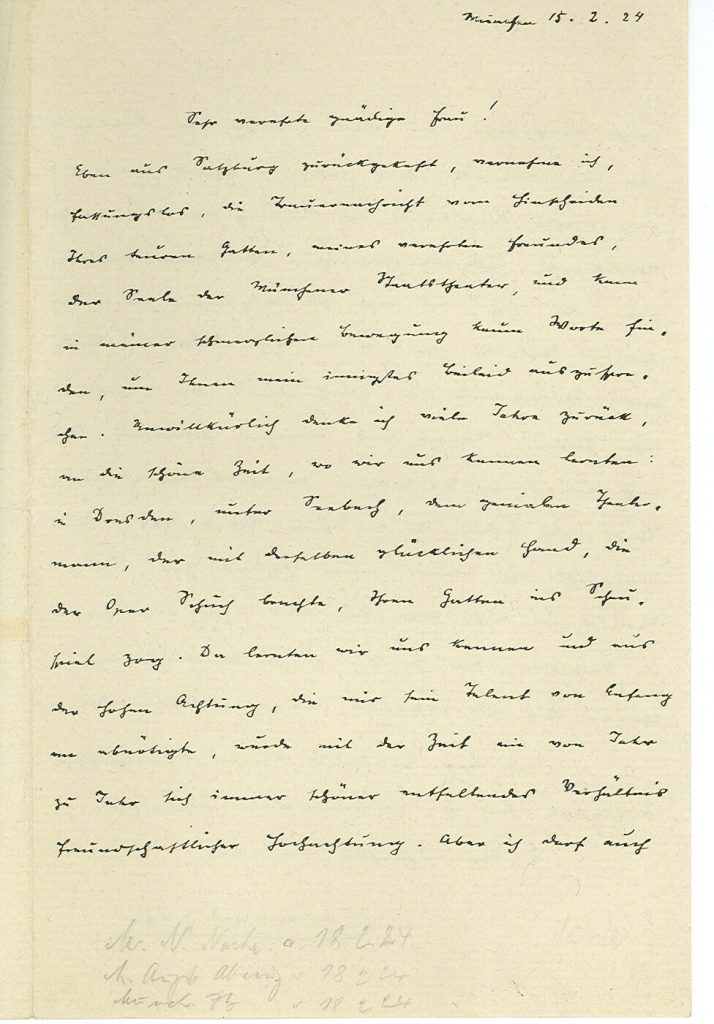 München 15. 2. 24
Sehr verehrte gnädige Frau!
Eben aus Salzburg zurückgekehrt, vernehme ich,
fassungslos, die Trauernachricht vom Hinscheiden
Ihres teuren Gatten, meines verehrten Freundes,
der Seele der Münchener Staatstheater, und kann
in meiner schmerzlichen Bewegung kaum Worte fin-
den, um Ihnen mein innigstes Beileid auszuspre-
chen. Unwillkürlich denke ich viele Jahre zurück,
an die schöne Zeit, wo wir uns kennen lernten:
in Dresden, unter Seebach, dem genialen Theater-
mann, der mit derselben glücklichen Hand, die
der Oper Schuch brachte, Ihren Gatten ins Schau-
spiel zog. Da lernten wir uns kennen und aus
der hohen Achtung, die mir sein Talent von Anfang
an abnötigte, wurde mit der Zeit ein von Jahr
zu Jahr sich immer schöner entfaltendes Verhältnis
freundschaftlicher Hochachtung. Aber ich darf auch
18 2 24
18 2 24
Münch. 18 2 24